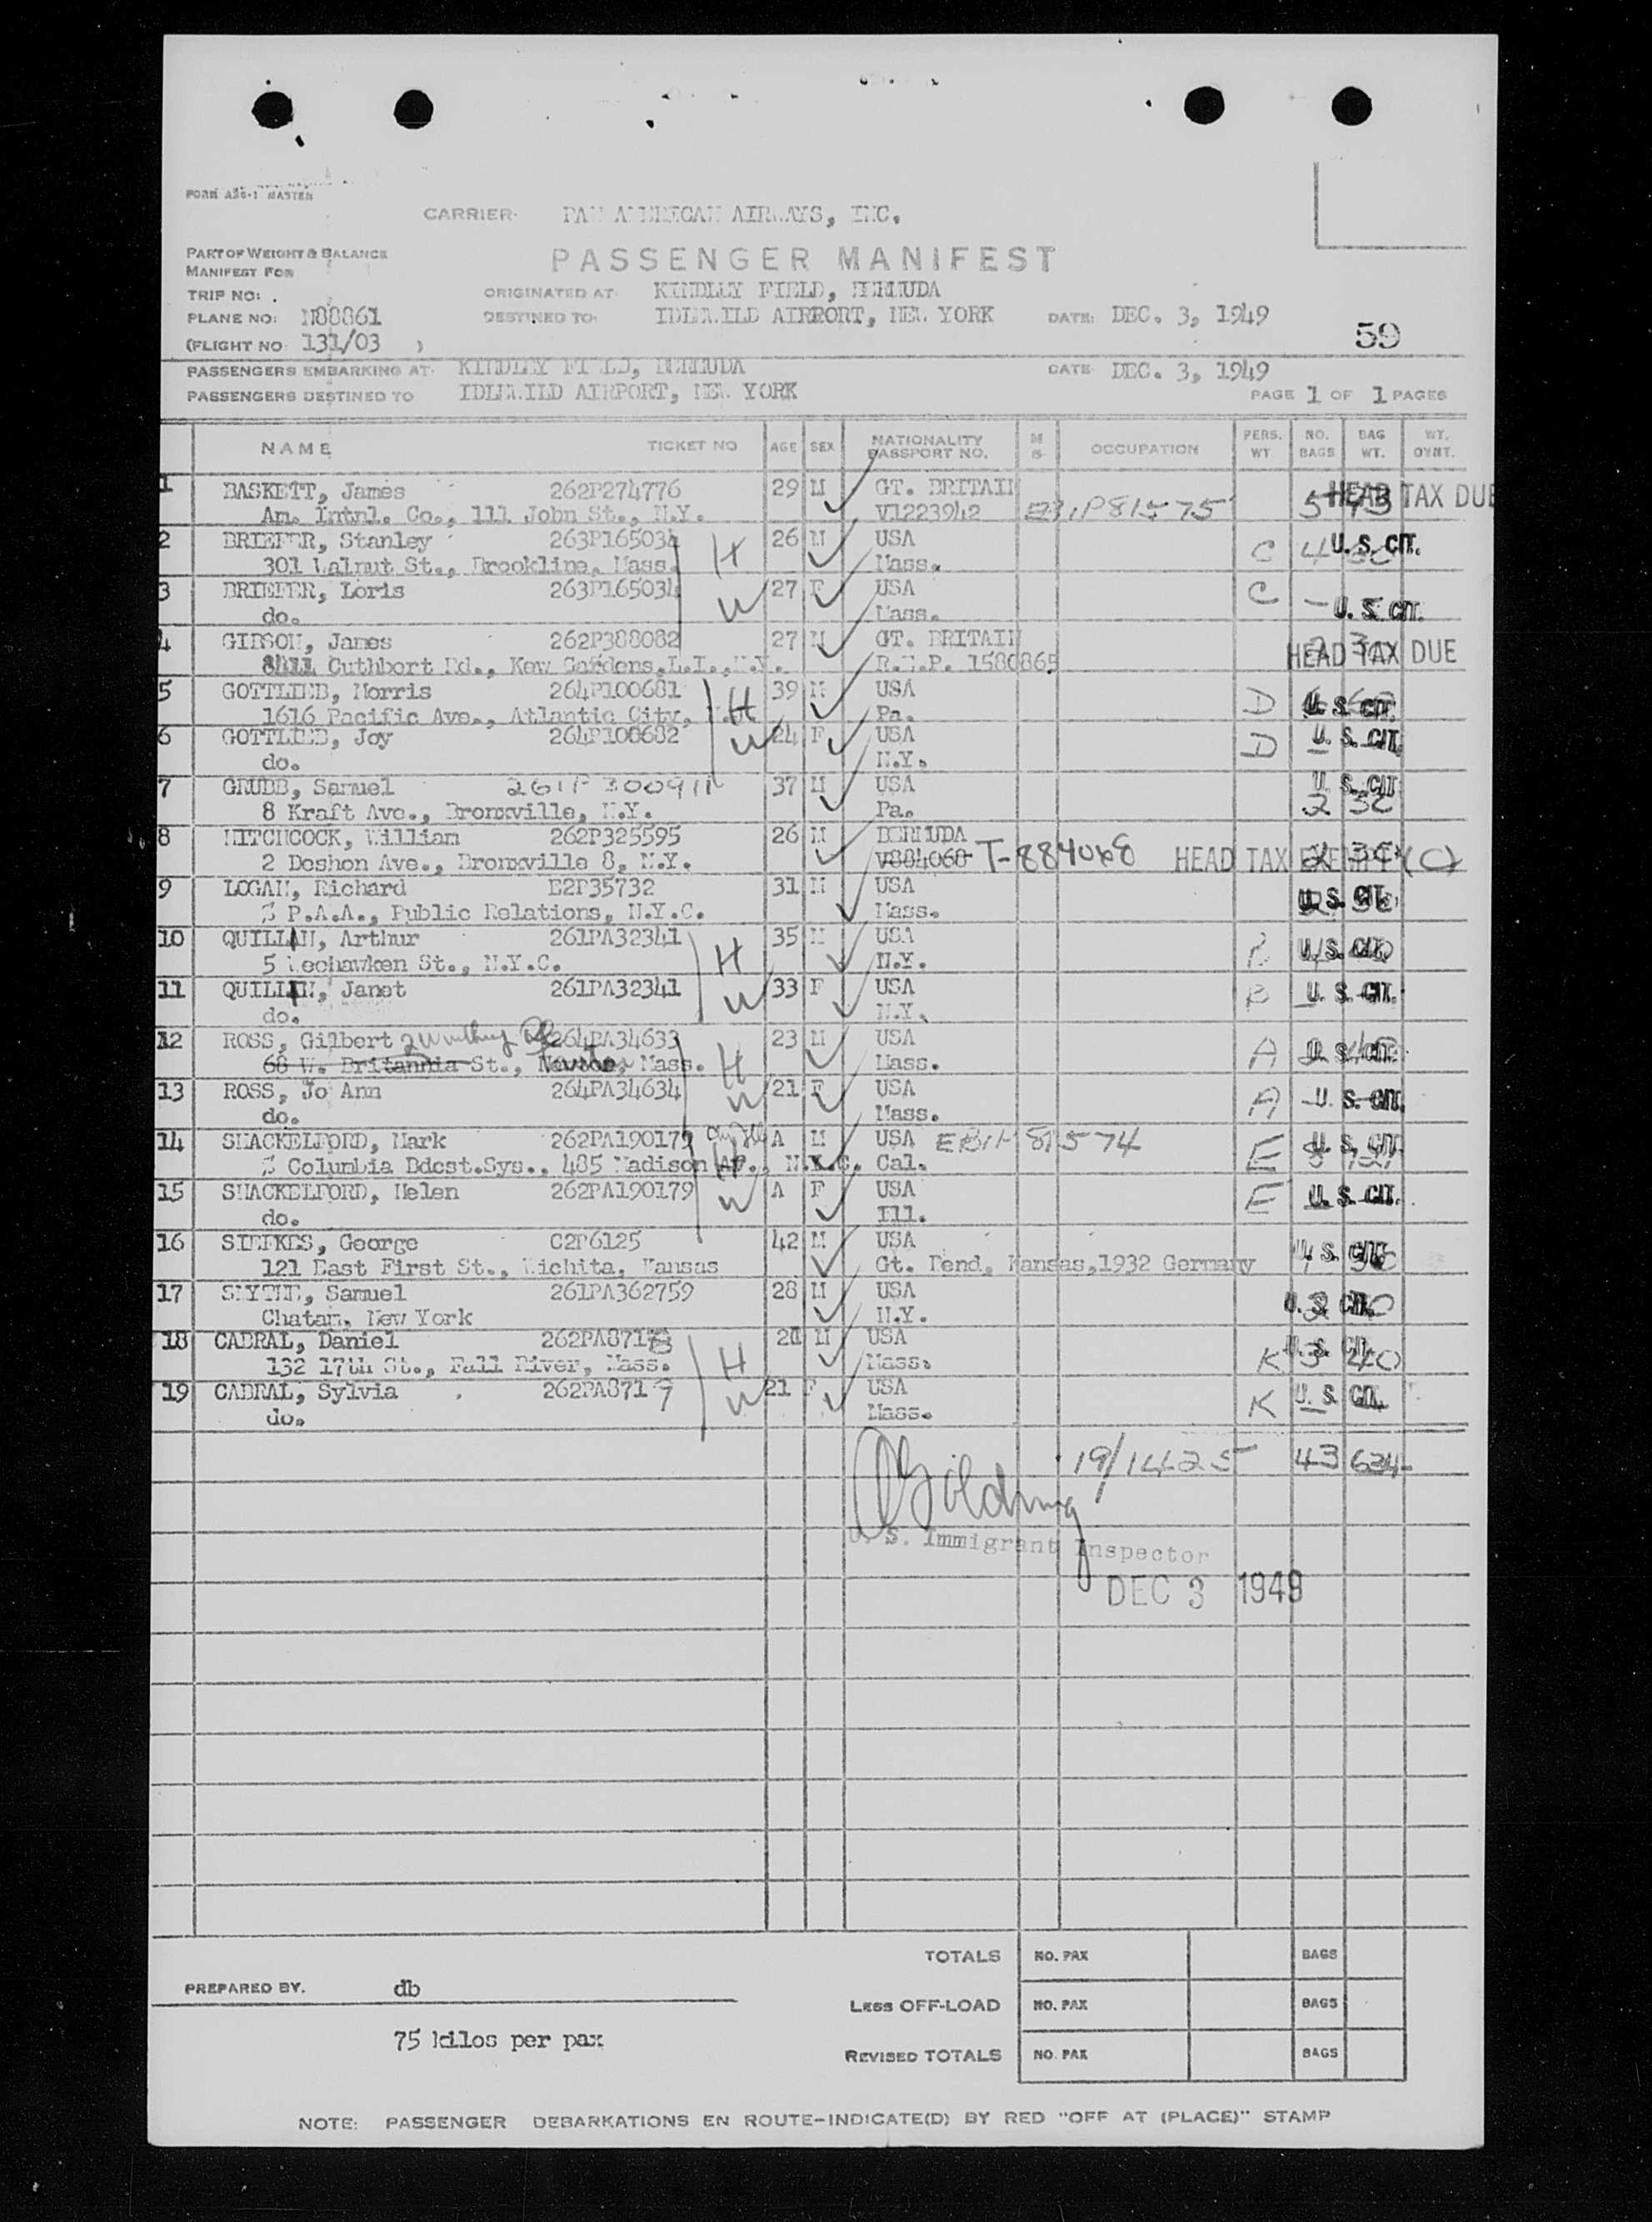 FORM
MASTER
CARRIER: PAN AMERICAN AIRWAYS, INC.
PART OF WEIGHT & BALANCE
MANIFEST FOR
PASSENGER MANIFEST
TRIP NO:
ORIGINATED AT: KINDLEY FIELD, BERMUDA
PLANE NO: N88861
DESTINED TO: IDLEWILD AIRPORT, NEW YORK DATE: DEC. 3, 1949
59
(FLIGHT NO: 131/03 )
PASSENGERS EMBARKING AT: KINDLEY FIELD, BERMUDA DATE: DEC. 3, 1949
PASSENGERS DESTINED TO IDLEWILD AIRPORT, NEW YORK PAGE 1 OF 1 PAGES
NAME TICKET NO AGE SEX NATIONALITY PASSPORT NO. M S OCCUPATION PERS. WT. NO. BAGS BAG WT. WT. OVHT.
1 BASKETT, James 262P274776 29 M GT. BRITAIN HEAD TAX DUE
Am. Intnl. Co., 111 John St., N.Y. V1223942
2 BRIEFER, Stanley 263P165034 H 26 M USA C 4 U. S. CIT.
301 Walnut St., Brookline, Mass. Mass.
3 BRIEFER, Loris 263P165034 W 27 F USA C — U. S. CIT.
do. Mass.
4 GIBSON, James 262P388082 27 M GT. BRITAIN HEAD TAX DUE
Cuthbert Rd., Kew Gardens, L.I., N.Y. R.E.P. 1580865
5 GOTTLIEB, Morris 264P100681 H 39 M USA D U. S. CIT.
1616 Pacific Ave., Atlantic City, Pa.
6 GOTTLIEB, Joy 264P100682 W 24 F USA D — U. S. CIT.
do. N.Y.
7 GRUBB, Samuel 37 M USA U. S. CIT.
8 Kraft Ave., Bronxville, N.Y. Pa. 2
8 HITCHCOCK, William 262P325595 26 M BERMUDA
2 Deshon Ave., Bronxville 8, N.Y. V884068 T-884068 HEAD TAX EXEMPT (C)
9 LOGAN, Richard B2P35732 31 M USA U. S. CIT.
P.A.A., Public Relations, N.Y.C. Mass.
10 QUILLAN, Arthur 261PA32341 H 35 M USA U. S. CIT.
5 Weehawken St., N.Y.C. N.Y.
11 QUILLAN, Janet 261PA32341 W 33 F USA B — U. S. CIT.
do. N.Y.
12 ROSS, Gilbert 264PA34633 H 23 M USA A U. S. CIT.
68 W. Britannia St., Mass. Mass.
13 ROSS, Jo Ann 264PA34634 W 21 F USA A — U. S. CIT.
do. Mass.
14 SHACKELFORD, Mark 262PA190179 A M USA E U. S. CIT.
Columbia Bdcst.Sys., 485 Madison Av., N.Y.C. Cal.
15 SHACKELFORD, Helen 262PA190179 W A F USA E — U. S. CIT.
do. Ill.
16 SIEFKES, George C2P6125 42 M USA U. S. CIT.
121 East First St., Wichita, Kansas Gt. Bend, Kansas, 1932 Germany
17 SMYTHE, Samuel 261PA362759 28 M USA U. S. CIT.
Chatam, New York N.Y.
18 CABRAL, Daniel 262PA8718 H M USA K U. S. CIT.
132 17th St., Fall River, Mass. Mass.
19 CABRAL, Sylvia 262PA8719 W 21 F USA K — U. S. CIT.
do. Mass.
19/1425 43 634
U. S. Immigrant Inspector
DEC 3 1949
TOTALS NO. PAX BAGS
PREPARED BY. db
LESS OFF-LOAD NO. PAX BAGS
75 kilos per pax
REVISED TOTALS NO. PAX BAGS
NOTE: PASSENGER DEBARKATIONS EN ROUTE-INDICATE(D) BY RED "OFF AT (PLACE)" STAMP